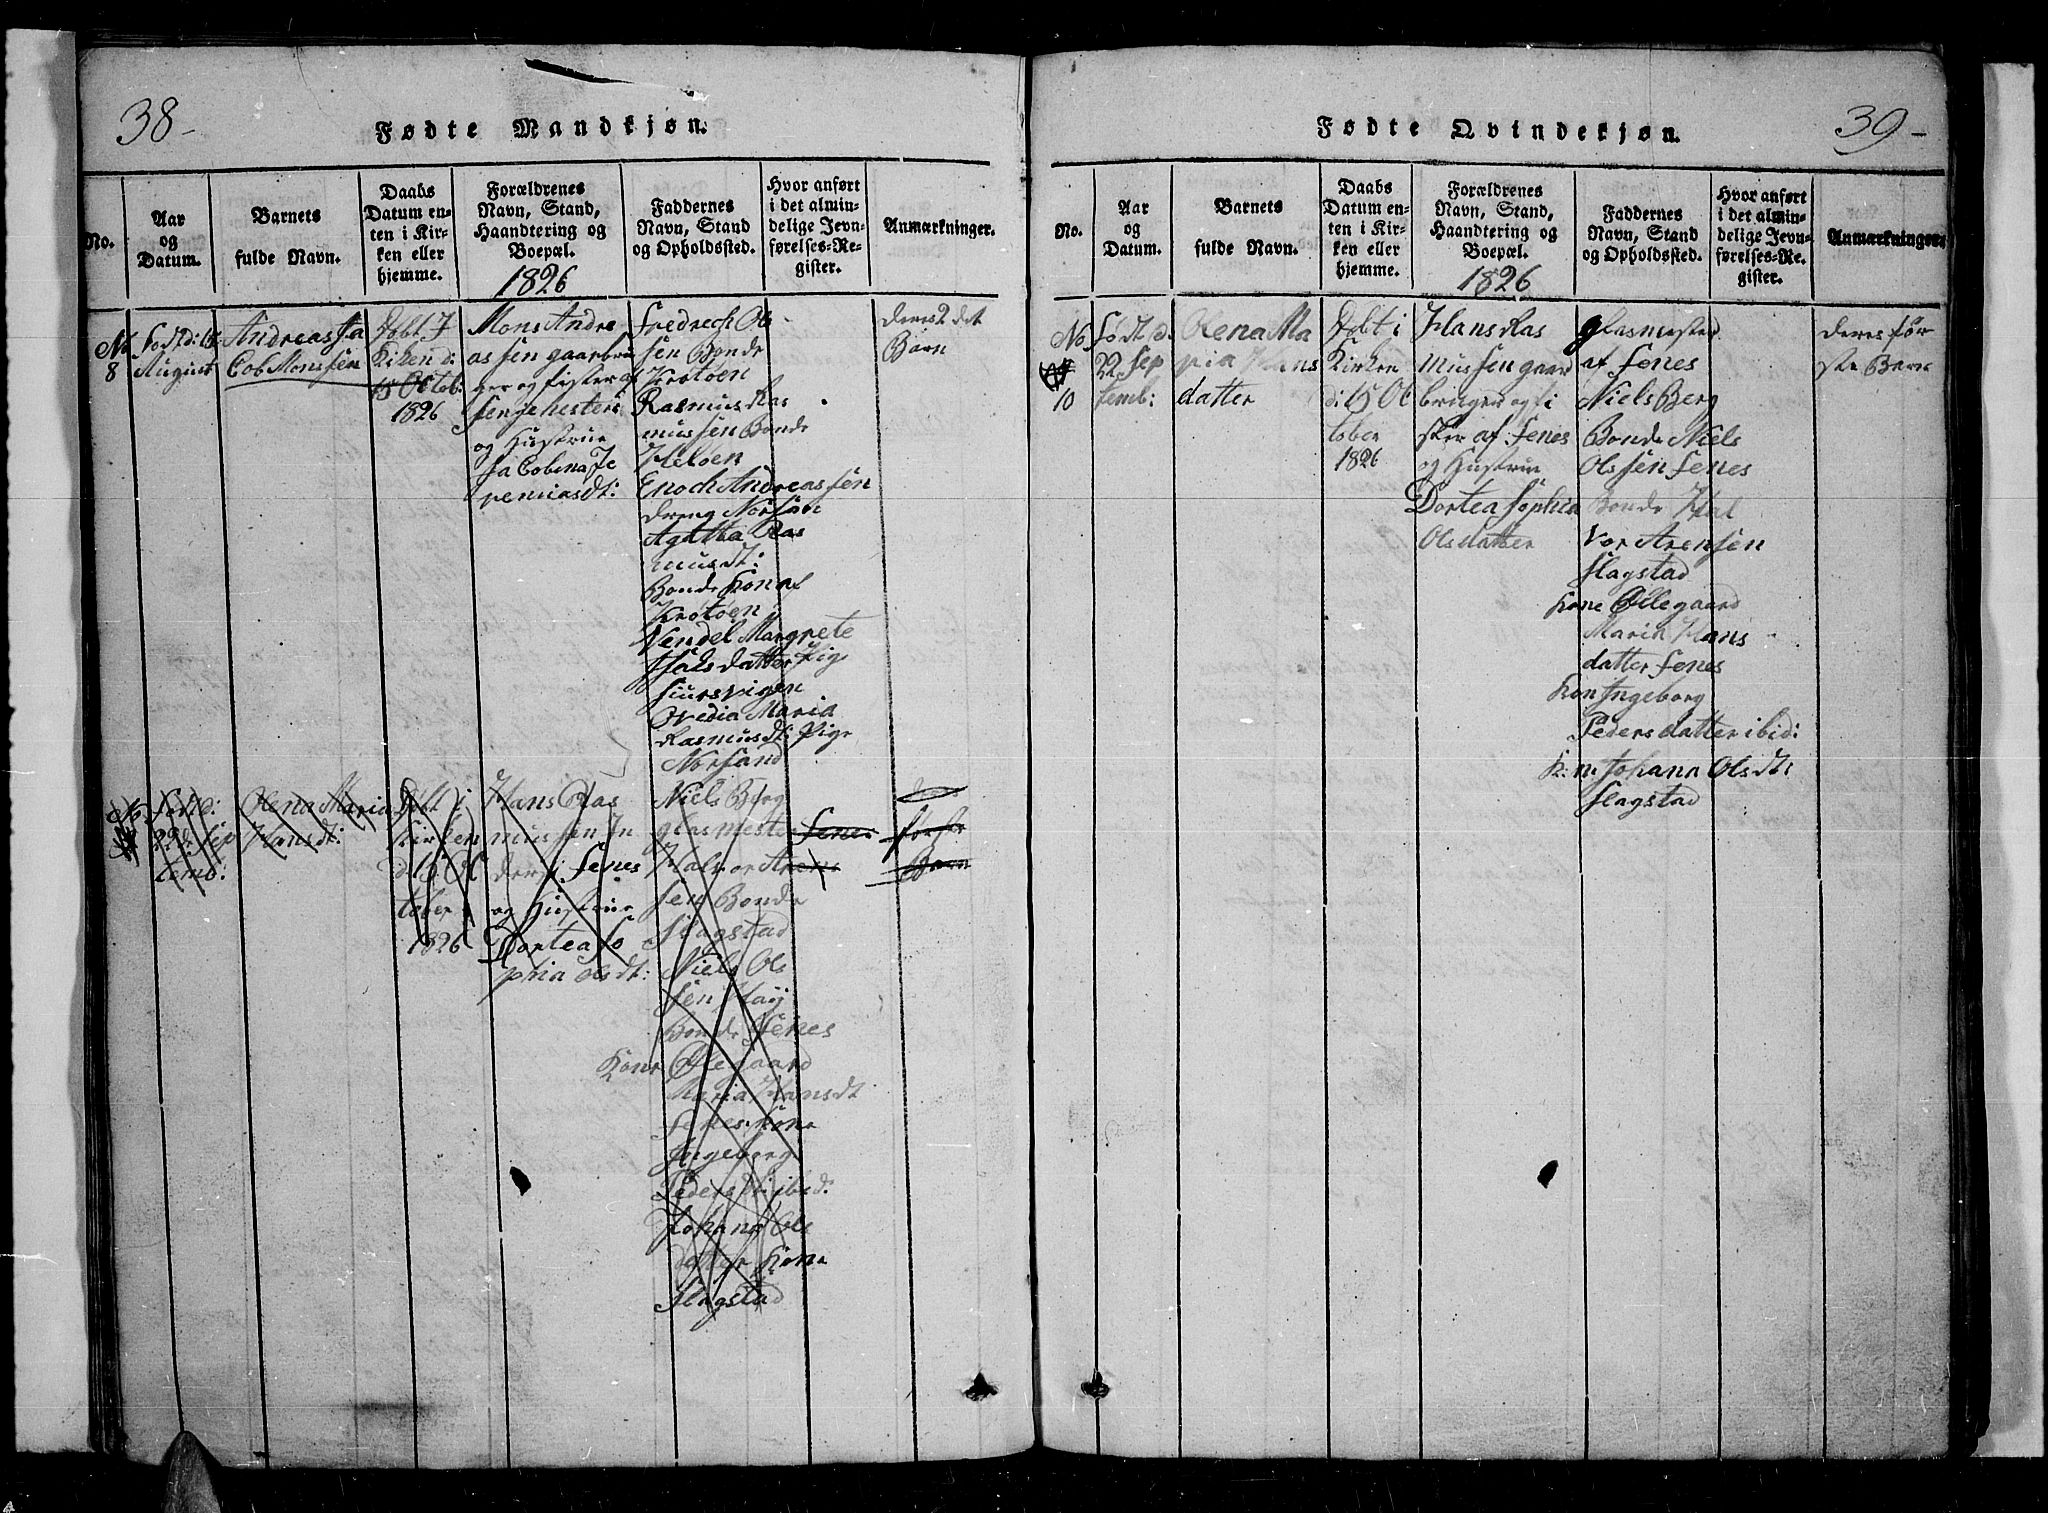 38-
Fødte Mandkjøn.
No.
Aar
og
Datum.
Barnets
fulde Navn.
Daabs
Datum en-
ten i Kir-
ken eller
hjemme.
Forældrenes
Navn, Stand,
Haandtering og
Boepæl.
1826
Faddernes
Navn, Stand
og Opholdssted.
Hvor anført
i det almin-
delige Jevn-
førelses-Re-
gister.
Anmærkninger.
No
8
Født d: 14
August
Andreas Ja
Cob Monssen
Døbt J
Kirken d:
15 Octob
1826
Mons Andre
as sen gaarbru
ger og fisker af
og Hustrue
Ja Cobena Je
remiasdt:
Fredrech Ols
sen Bonde
Krøtøen
Rasmus Ras
mussen Bonde
Heløen
Enoch Andreassen
dreng Norsan
Agatha Ras
musdt:
Bonde Kona
Krøtøen
Vendel Margrete
Isaksdatter Pige
Ovedia Maria
Rasmusdt: Pige
Norsand
deres 2 det
Barn
No
Født d:
22de Sep
temb:
Olena Maria
Hansdt:
Døbt i
Kirken
d 15 Oc
tober
1826
Hans Ras
mussen In
ders Senes
og Hustrue
Dortea So
phia Olsdt:
Niels Berg
glasmester Senes
Halvor Arens
sen Bonde
Slagstad
Niels Ols
sen
Bonde Senes
Kone Ollegaard
Maria Hansdt
Senes Kone
Ingeborg
Pedersdt: ibid:
Johana Ols
datter Kone
Slagstad
første
Barn
39-
Fødte Qvindekjøn.
No.
Aar
og
Datum.
Barnets
fulde Navn.
Daabs
Datum en-
ten i Kir-
ken eller
hjemme.
Forældrenes
Navn, Stand,
Haandtering og
Boepæl.
1826
Faddernes
Navn, Stand
og Opholdssted.
Hvor anført
i det almin-
delige Jevn-
førelses-Re-
gister.
Anmærkninger.
No
10
Født d.
22 Sep
temb:
Olena Ma
ria Hans
datter
Døbt i
Kirken
d: 15 Oc
tober
1826
Hans Ras
mussen gaard
bruger og fi
sker af Senes
og Hustrue
Dortea Sophia
Olsdatter
glasmester
af Senes
Niels Berg
Bonde Niels
Olssen Senes
Bonde Hal
vor Arensen
Slagstad
Kone Ollegaard
Maria Hans
datter Senes
Kon Ingeborg
Pedersdatter ibid:
Johana Olsdt:
Slagstad
deres før
ste Barn